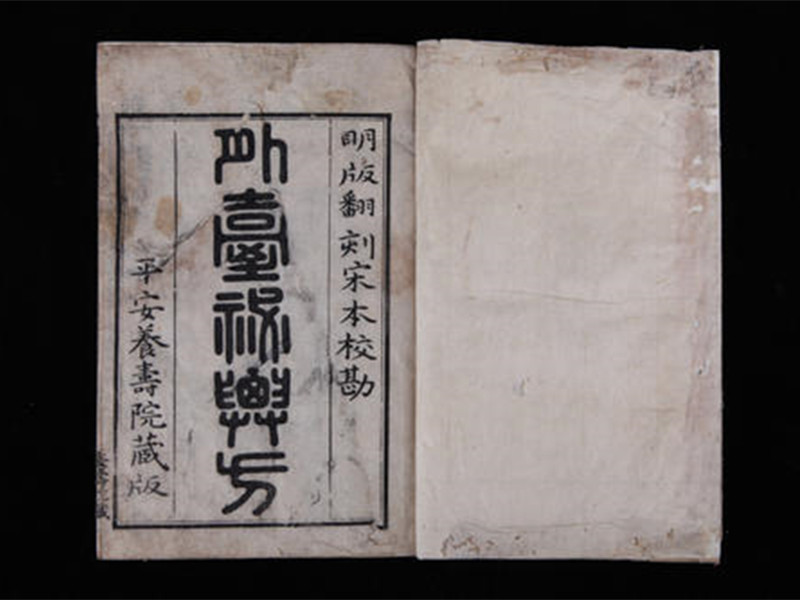 明版翻刻宋本校勘
外臺祕要方
平安養壽院藏版